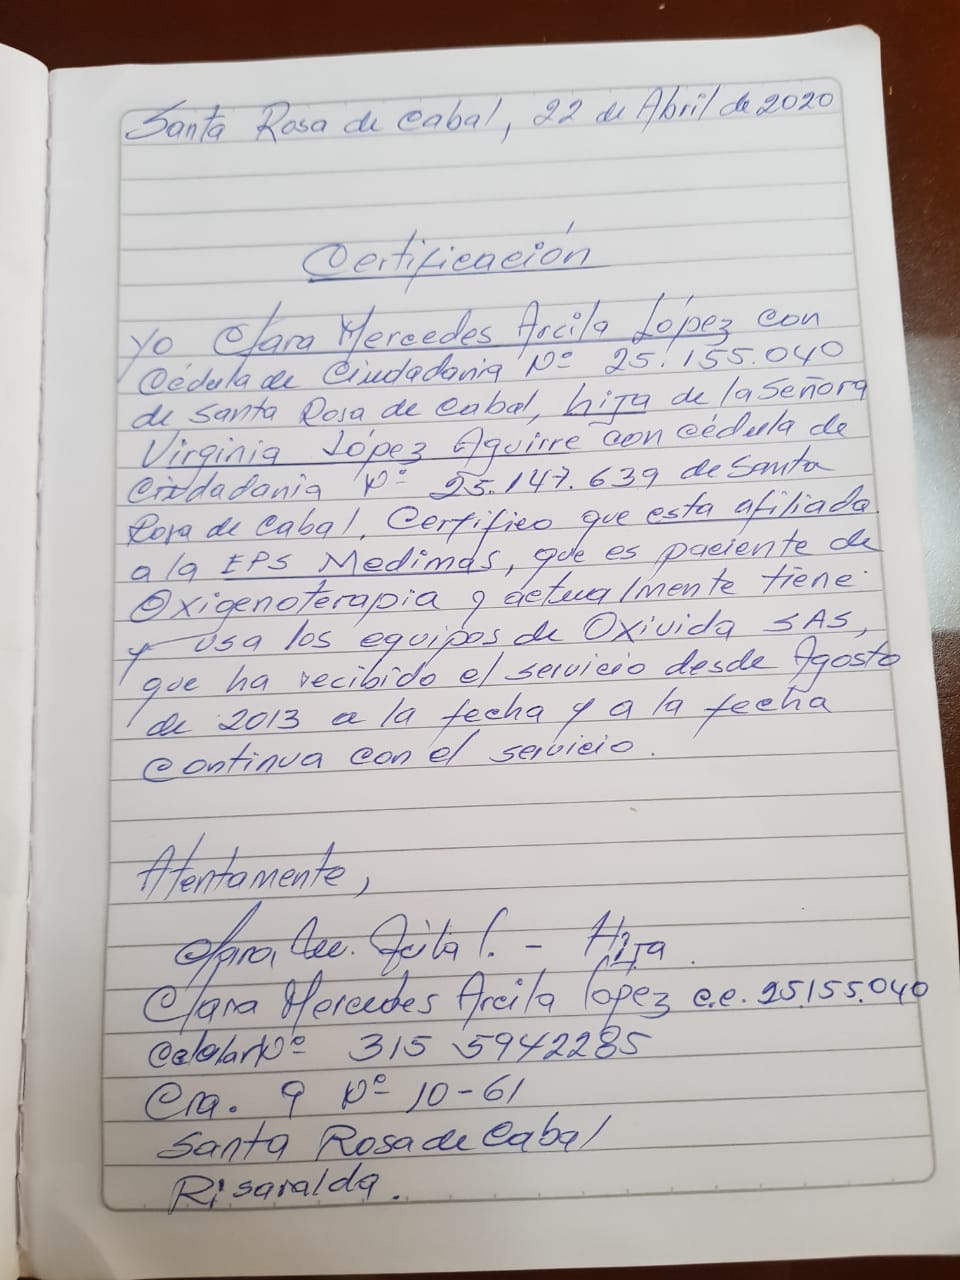 Santa Rosa de Cabal, 22 de Abril de 2020
Certificación
Yo Clara Mercedes Arcila López con
Cédula de Ciudadania Nº 25.155.040
de Santa Rosa de Cabal, hija de la Señora
Virginia López Aguirre con cédula de
Ciudadania Nº 25.147.639 de Santa
Rosa de Cabal, Certifico que esta afiliada
a la EPS Medimas, que es paciente de
Oxigenoterapia y actualmente tiene
y usa los equipos de Oxivida SAS,
que ha recibido el servicio desde Agosto
de 2013 a la fecha y a la fecha
continua con el servicio.
Atentamente,
Clara Me. Arcila L. - Hija.
Clara Mercedes Arcila López c.c. 25.155.040
Celular Nº 315 5942285
Cra. 9 Nº 10-61
Santa Rosa de Cabal
Risaralda.